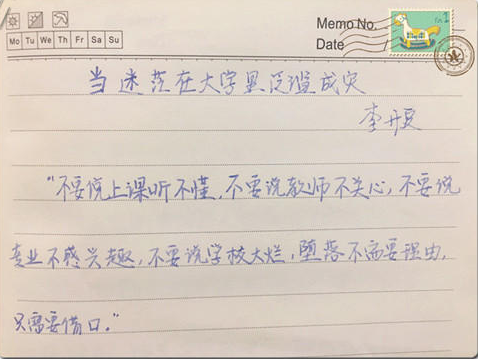 Memo No.
Mo Tu We Th Fr Sa Su
Date
当迷茫在大学里泛滥成灾
李开复
“不要说上课听不懂，不要说教师不关心，不要说
专业不感兴趣，不要说学校太烂，堕落不需要理由，
只需要借口。”